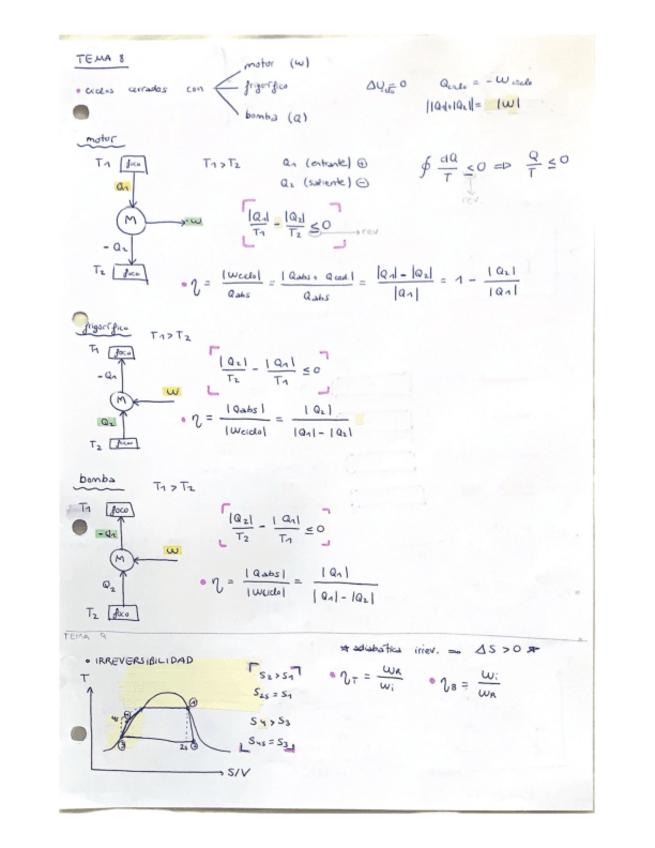 TEMA 8
• ciclos cerrados con
motor (W)
frigorífico
bomba (Q)
ΔUciclo = 0
Qciclo = - Wciclo
||Q1|-|Q2|| = |W|
motor
T1 foco
T1 > T2
Q1 (entrante) ⊕
Q2 (saliente) ⊖
∮ dQ/T ≤ 0 ⇒ Q/T ≤ 0
rev.
Q1
M
-W
|Q1|/T1 - |Q2|/T2 ≤ 0 → rev
- Q2
T2 foco
• η = |Wciclo|/Qabs = |Qabs + Qced|/Qabs = |Q1| - |Q2|/|Q1| = 1 - |Q2|/|Q1|
frigorífico
T1 > T2
T1 foco
-Q1
M
W
Q2
T2 foco
|Q2|/T2 - |Q1|/T1 ≤ 0
• η = |Qabs|/|Wciclo| = |Q2|/|Q1| - |Q2|
bomba
T1 > T2
T1 foco
-Q1
M
W
Q2
T2 foco
|Q2|/T2 - |Q1|/T1 ≤ 0
• η = |Qabs|/|Wciclo| = |Q1|/|Q1| - |Q2|
TEMA 9
• IRREVERSIBILIDAD
* adiabática irrev. ⇒ ΔS > 0 *
T
S2 > S1
S2s = S1
S4 > S3
S4s = S3
• ηT = WR/Wi
• ηB = Wi/WR
4s
1
3
2s
S/V